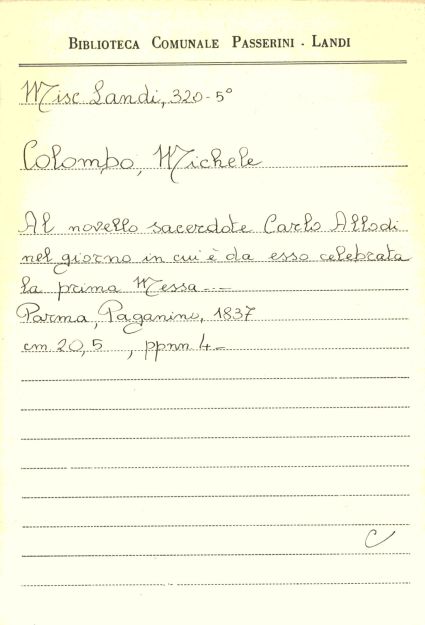 BIBLIOTECA COMUNALE PASSERINI - LANDI
Misc Landi, 320-5°
Colombo, Michele
Al novello sacerdote Carlo Allodi
nel giorno in cui è da esso celebrata
la prima Messa ---
Parma, Paganino, 1837
cm 20,5 , ppnn 4-
C